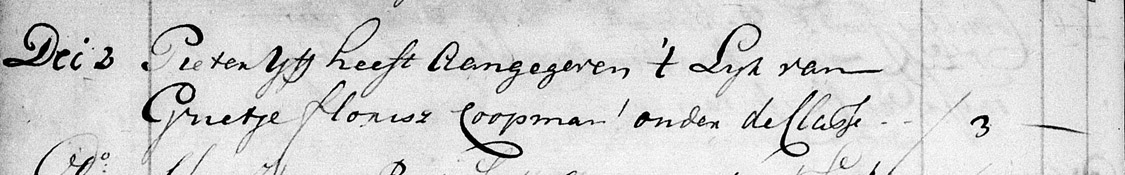 Dec 2 Pieter Yff heeft Aangegeven 't Lyk van
Grietje florisz Coopman onder de Classe - - / 3 —